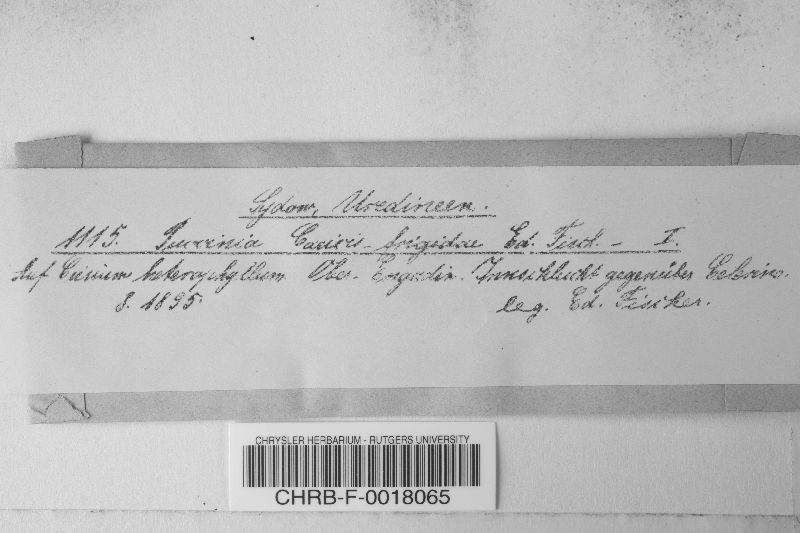 Sydow, Uredineen.
1115. Puccinia Caricis-frigidae Ed. Fisch. - I.
Auf Cirsium heterophyllum. Ober-Engadin. Innschlucht gegenüber Celerina.
8. 1895. leg. Ed. Fischer.
CHRYSLER HERBARIUM - RUTGERS UNIVERSITY
CHRB-F-0018065